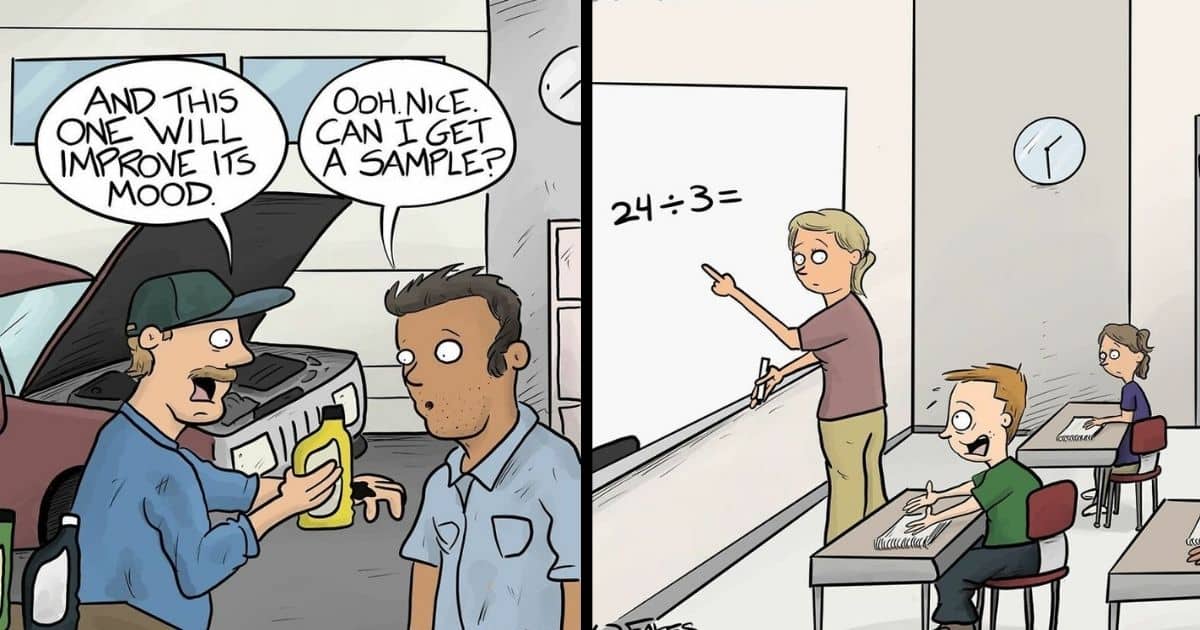 AND THIS
ONE WILL
IMPROVE ITS
MOOD.
OOH. NICE.
CAN I GET
A SAMPLE?
24÷3=